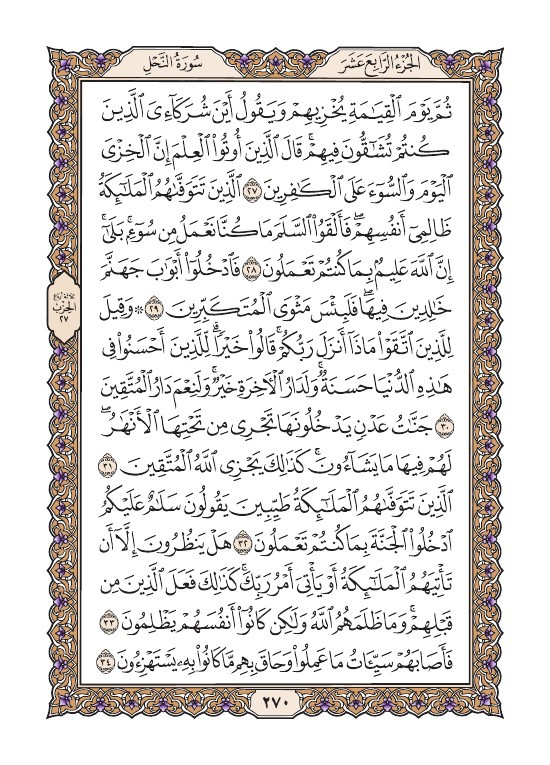 الجُزْءُ الرَّابِعَ عَشَرَ
سُورَةُ النَّحْلِ
ثُمَّ يَوْمَ ٱلْقِيَـٰمَةِ يُخْزِيهِمْ وَيَقُولُ أَيْنَ شُرَكَآءِىَ ٱلَّذِينَ
كُنتُمْ تُشَـٰٓقُّونَ فِيهِمْ ۚ قَالَ ٱلَّذِينَ أُوتُوا۟ ٱلْعِلْمَ إِنَّ ٱلْخِزْىَ
ٱلْيَوْمَ وَٱلسُّوٓءَ عَلَى ٱلْكَـٰفِرِينَ ٢٧ ٱلَّذِينَ تَتَوَفَّىٰهُمُ ٱلْمَلَـٰٓئِكَةُ
ظَالِمِىٓ أَنفُسِهِمْ ۖ فَأَلْقَوُا۟ ٱلسَّلَمَ مَا كُنَّا نَعْمَلُ مِن سُوٓءٍۭ ۚ بَلَىٰٓ
إِنَّ ٱللَّهَ عَلِيمٌۢ بِمَا كُنتُمْ تَعْمَلُونَ ٢٨ فَٱدْخُلُوٓا۟ أَبْوَٰبَ جَهَنَّمَ
خَـٰلِدِينَ فِيهَا ۖ فَلَبِئْسَ مَثْوَى ٱلْمُتَكَبِّرِينَ ٢٩ ۞ وَقِيلَ
لِلَّذِينَ ٱتَّقَوْا۟ مَاذَآ أَنزَلَ رَبُّكُمْ ۚ قَالُوا۟ خَيْرًا ۗ لِّلَّذِينَ أَحْسَنُوا۟ فِى
هَـٰذِهِ ٱلدُّنْيَا حَسَنَةٌ ۚ وَلَدَارُ ٱلْـَٔاخِرَةِ خَيْرٌ ۚ وَلَنِعْمَ دَارُ ٱلْمُتَّقِينَ
٣٠ جَنَّـٰتُ عَدْنٍ يَدْخُلُونَهَا تَجْرِى مِن تَحْتِهَا ٱلْأَنْهَـٰرُ ۖ
لَهُمْ فِيهَا مَا يَشَآءُونَ ۚ كَذَٰلِكَ يَجْزِى ٱللَّهُ ٱلْمُتَّقِينَ ٣١
ٱلَّذِينَ تَتَوَفَّىٰهُمُ ٱلْمَلَـٰٓئِكَةُ طَيِّبِينَ ۙ يَقُولُونَ سَلَـٰمٌ عَلَيْكُمُ
ٱدْخُلُوا۟ ٱلْجَنَّةَ بِمَا كُنتُمْ تَعْمَلُونَ ٣٢ هَلْ يَنظُرُونَ إِلَّآ أَن
تَأْتِيَهُمُ ٱلْمَلَـٰٓئِكَةُ أَوْ يَأْتِىَ أَمْرُ رَبِّكَ ۚ كَذَٰلِكَ فَعَلَ ٱلَّذِينَ مِن
قَبْلِهِمْ ۚ وَمَا ظَلَمَهُمُ ٱللَّهُ وَلَـٰكِن كَانُوٓا۟ أَنفُسَهُمْ يَظْلِمُونَ ٣٣
فَأَصَابَهُمْ سَيِّـَٔاتُ مَا عَمِلُوا۟ وَحَاقَ بِهِم مَّا كَانُوا۟ بِهِۦ يَسْتَهْزِءُونَ ٣٤
الحِزْبُ
٢٧
٢٧٠